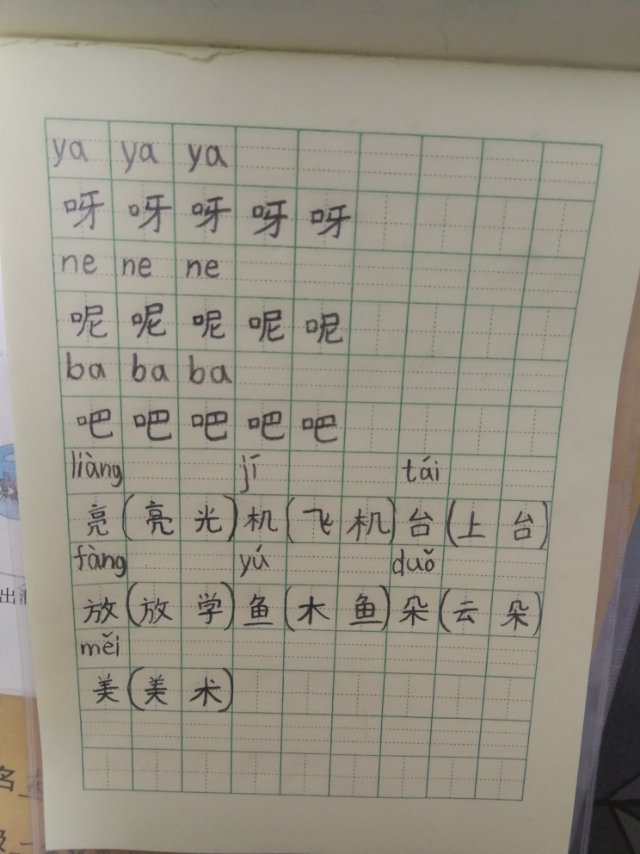 ya ya ya
呀 呀 呀 呀 呀
ne ne ne
呢 呢 呢 呢 呢
ba ba ba
吧 吧 吧 吧 吧
liàng jī tái
亮(亮光)机(飞机)台(上台)
fàng yú duǒ
放(放学)鱼(木鱼)朵(云朵)
měi
美(美术)